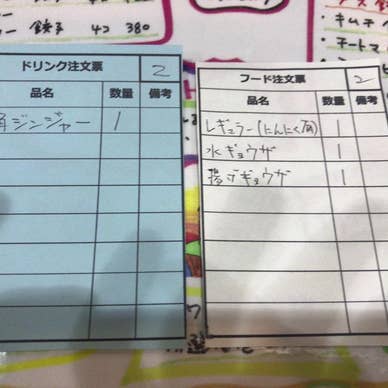 餃子 4コ 380
キムチ
チートマ
ドリンク注文票 2
品名 数量 備考
角ジンジャー 1
フード注文票 2
品名 数量 備考
レギュラー(にんにく有) 1
水ギョウザ 1
揚げギョウザ 1